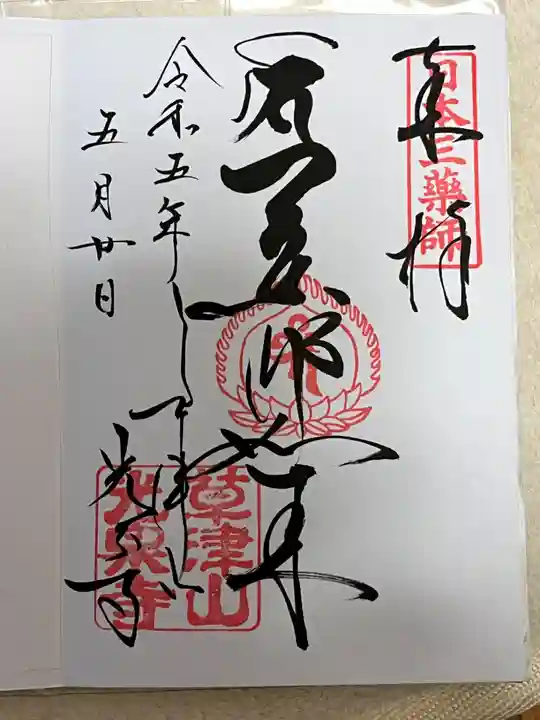 奉拝
日本三藥師
師如来
草津山
光泉寺
光泉寺
令和五年
五月廿日